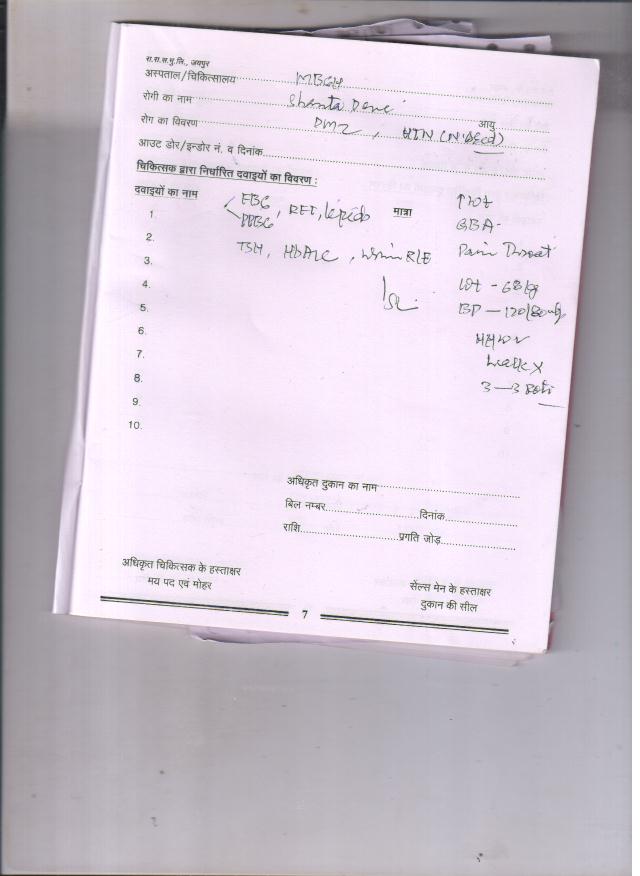 रा.रा.स.मु.लि., जयपुर
अस्पताल/चिकित्सालय MBGH
रोगी का नाम Shanta Devi आयु
रोग का विवरण DM2, HTN
आउट डोर/इन्डोर नं. व दिनांक
चिकित्सक द्वारा निर्धारित दवाइयों का विवरण :
दवाइयों का नाम FBG मात्रा ↑wt
1. PPBG, RFT, lipids GBA
2. TSH, HbA1C, Urine R/E Pain Throat
3.
4. wt - 68 kg
5. BP - 120/80
6.
7. walk X
8. 3-3 Roti
9.
10.
अधिकृत दुकान का नाम
बिल नम्बर दिनांक
राशि प्रगति जोड़
अधिकृत चिकित्सक के हस्ताक्षर
मय पद एवं मोहर
सेंल्स मेन के हस्ताक्षर
दुकान की सील
7